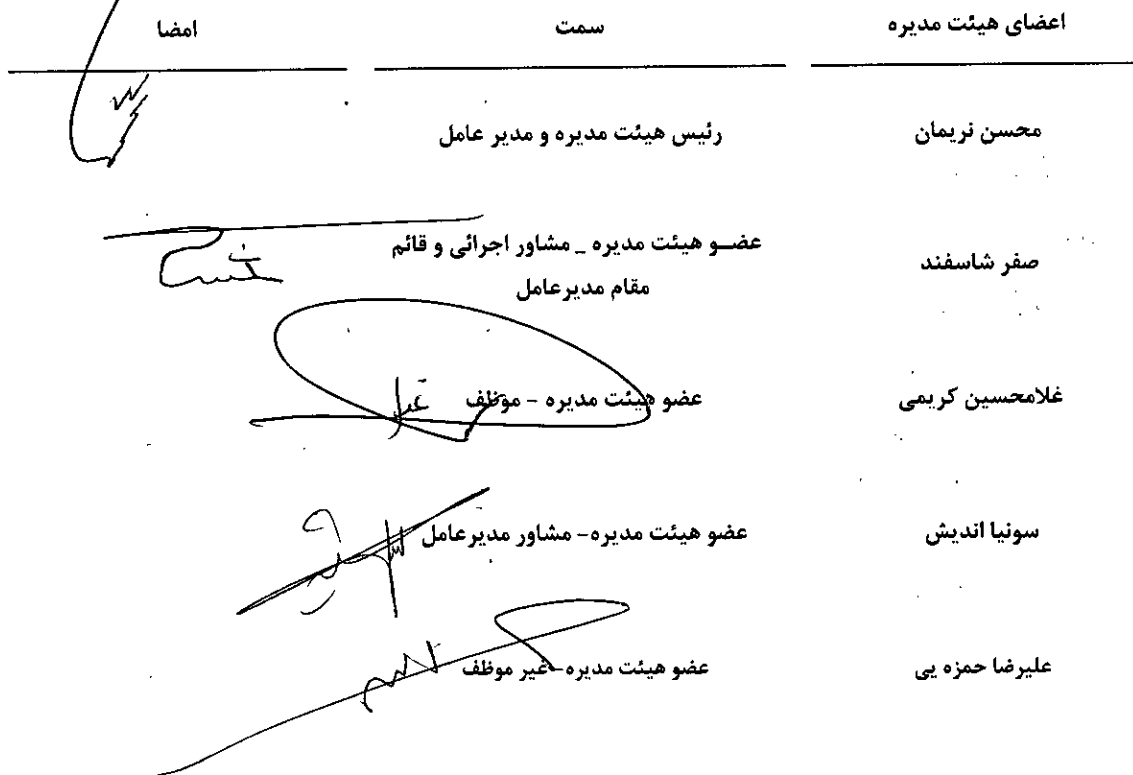 اعضای هیئت مدیره سمت امضا
محسن نریمان رئیس هیئت مدیره و مدیر عامل
صفر شاسفند عضـو هیئت مدیره _ مشاور اجرائی و قائم
مقام مدیرعامل
غلامحسین کریمی عضو هیئت مدیره - موظف
سونیا اندیش عضو هیئت مدیره- مشاور مدیرعامل
علیرضا حمزه یی عضو هیئت مدیره- غیر موظف